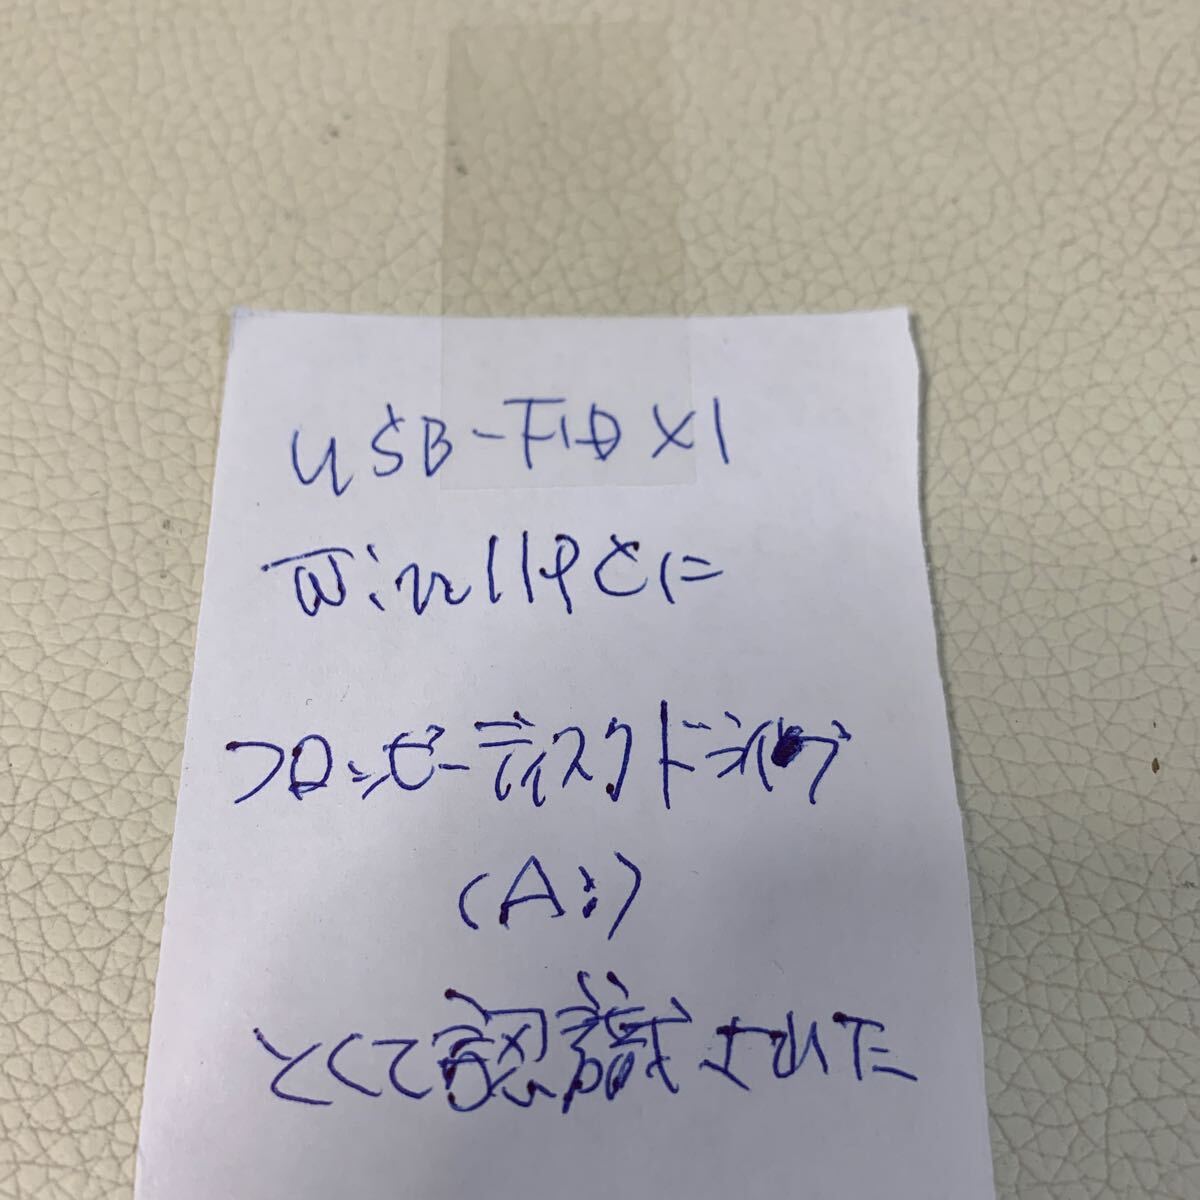 USB-FDX1
Win11PCに
フロッピーディスクドライブ
(A:)
として認識された